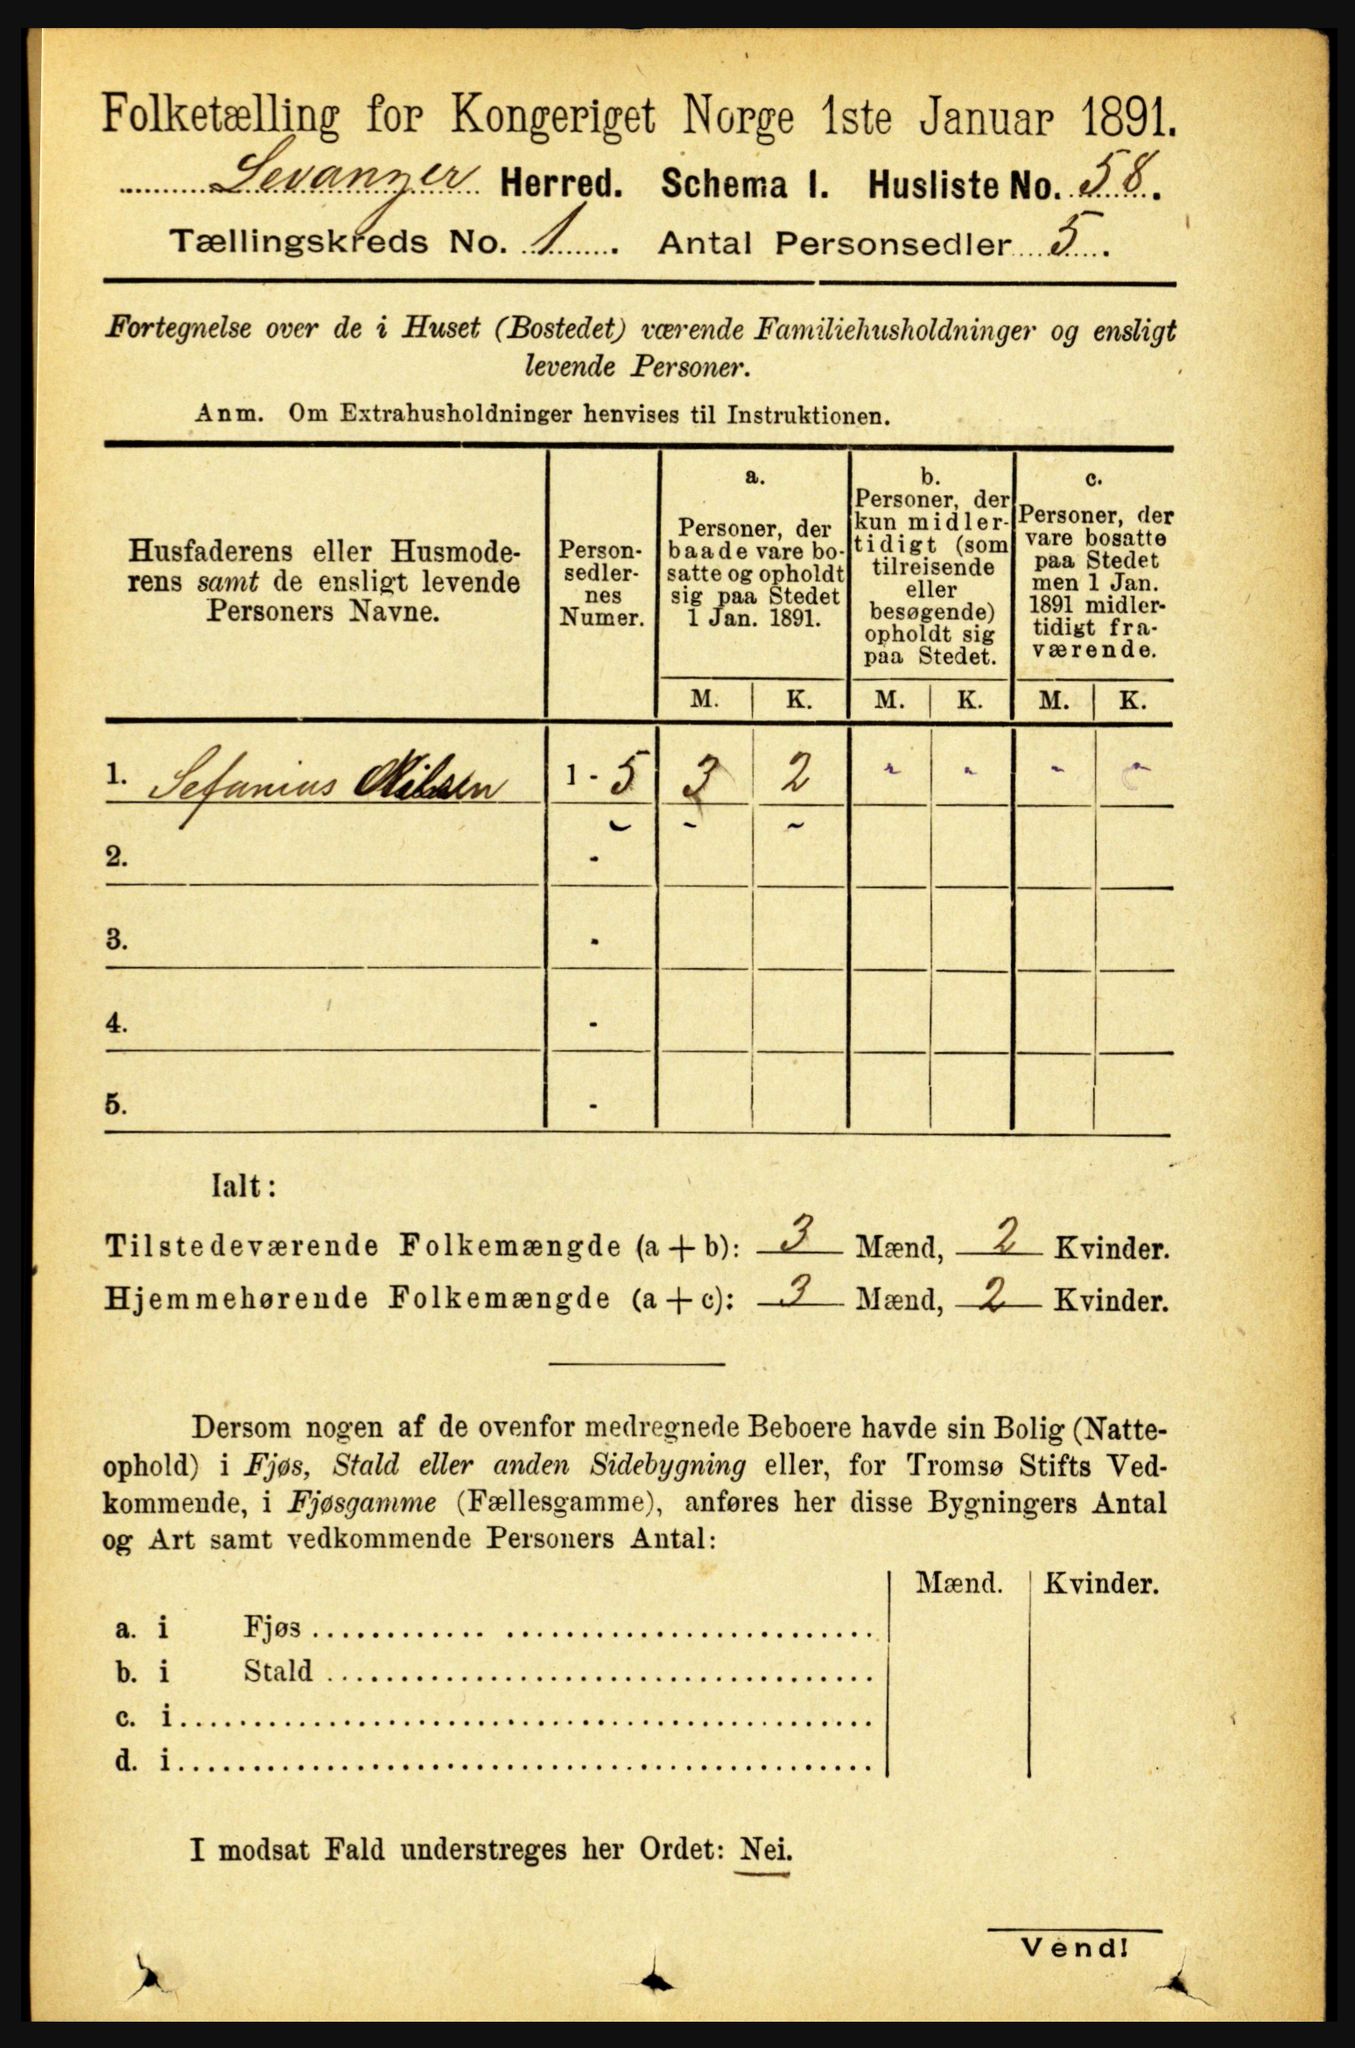 Folketælling for Kongeriget Norge 1ste Januar 1891.
Levanger Herred. Schema I. Husliste No. 58.
Tællingskreds No. 1. Antal Personsedler 5.
Fortegnelse over de i Huset (Bostedet) værende Familiehusholdninger og ensligt
levende Personer.
Anm. Om Extrahusholdninger henvises til Instruktionen.
Husfaderens eller Husmode-
rens samt de ensligt levende
Personers Navne.
Person-
sedler-
nes
Numer.
a.
Personer, der
baade vare bo-
satte og opholdt
sig paa Stedet
1 Jan. 1891.
b.
Personer, der
kun midler-
tidigt (som
tilreisende
eller
besøgende)
opholdt sig
paa Stedet.
c.
Personer, der
vare bosatte
paa Stedet
men 1 Jan.
1891 midler-
tidigt fra-
værende.
M. K. M. K. M. K.
1. Sefanias Nilsen 1 - 5 3 2 " " " "
2. -
3. -
4. -
5. -
Ialt:
Tilstedeværende Folkemængde (a + b): 3 Mænd, 2 Kvinder.
Hjemmehørende Folkemængde (a + c): 3 Mænd, 2 Kvinder.
Dersom nogen af de ovenfor medregnede Beboere havde sin Bolig (Natte-
ophold) i Fjøs, Stald eller anden Sidebygning eller, for Tromsø Stifts Ved-
kommende, i Fjøsgamme (Fællesgamme), anføres her disse Bygningers Antal
og Art samt vedkommende Personers Antal:
Mænd. Kvinder.
a. i Fjøs
b. i Stald
c. i
d. i
I modsat Fald understreges her Ordet: Nei.
Vend!